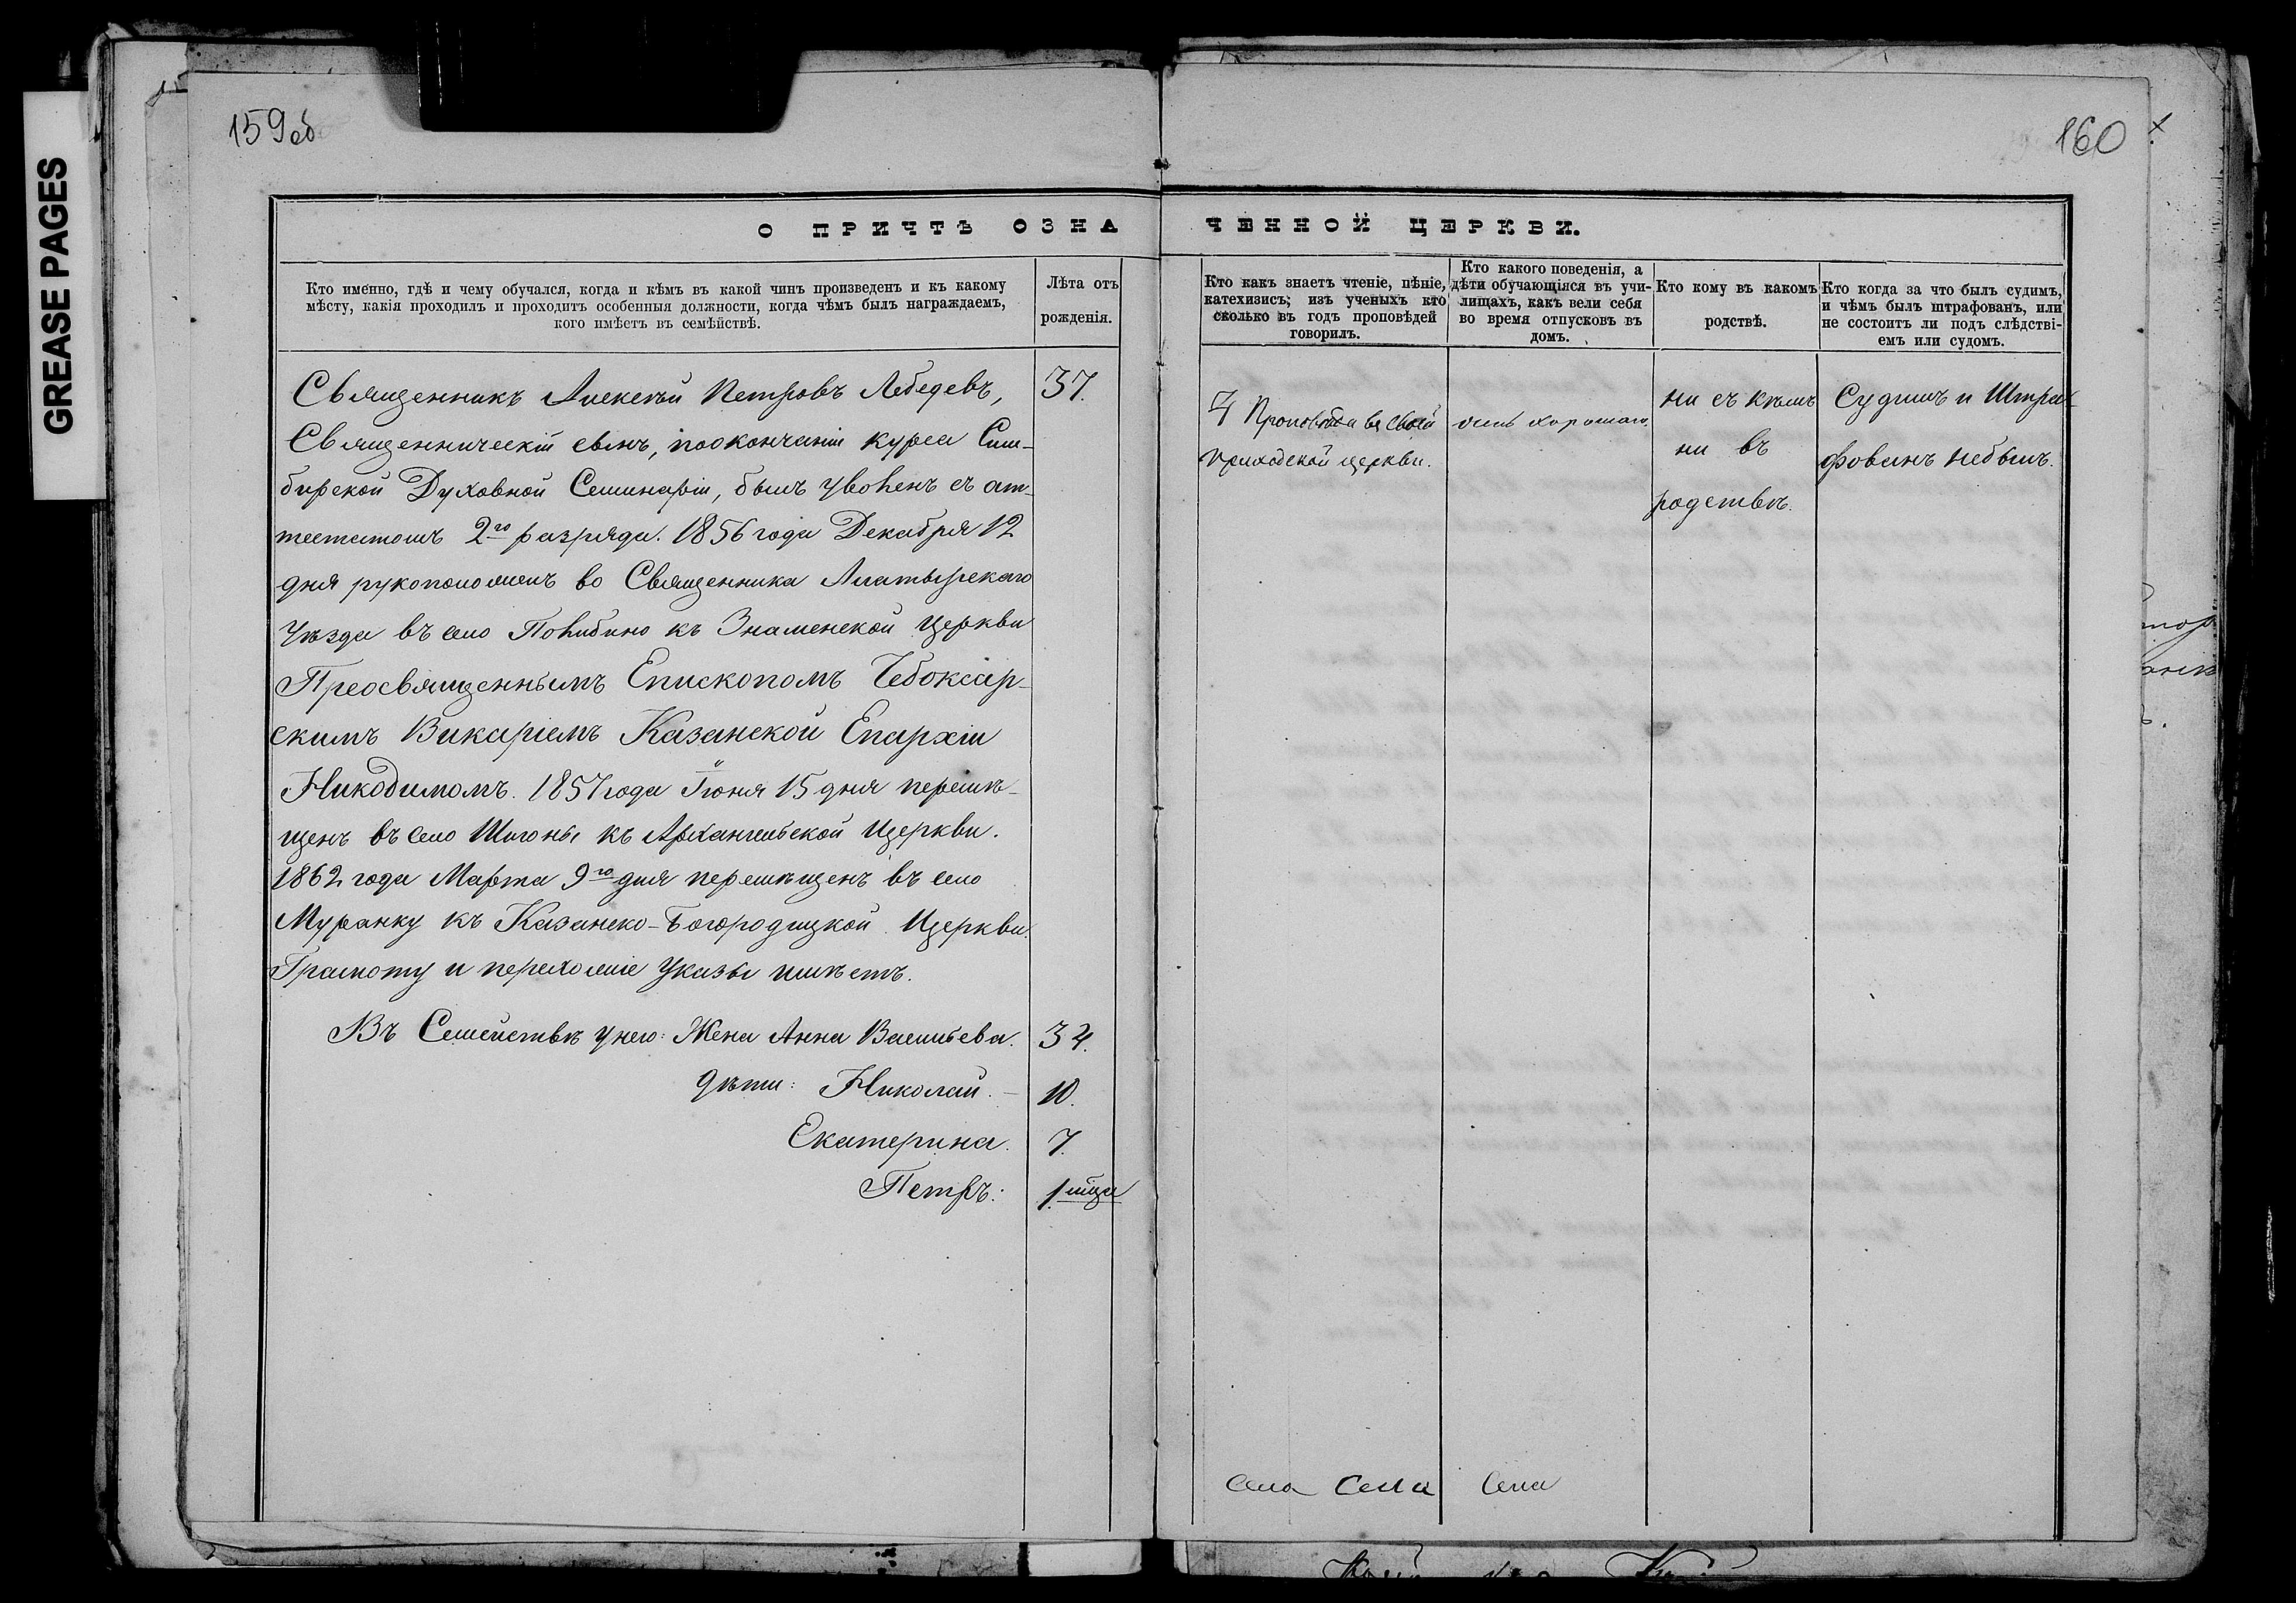 GREASE PAGES
159об
160
О ПРИЧТѢ ОЗНА
ЧЕННОЙ ЦЕРКВИ.
Кто именно, гдѣ и чему обучался, когда и кѣмъ въ какой чинъ произведенъ и къ какому
мѣсту, какія проходилъ и проходитъ особенныя должности, когда чѣмъ былъ награждаемъ,
кого имѣетъ въ семѣйствѣ.
Лѣта отъ
рожденія.
Священникъ Алексѣй Петровъ Лебедевъ, 37.
Священническій сынъ, по окончаніи курса Сим-
бирской Духовной Семинаріи, былъ уволенъ съ ат-
тестатомъ 2го разряда. 1856 года Декабря 12
дня рукоположенъ во Священника Алатырскаго
Уѣзда въ село къ Знаменской Церкви
Преосвященнымъ Епископомъ Чебоксар-
скимъ Викаріемъ Казанской Епархіи
Никодимомъ. 1857 года Іюня 15 дня перемѣ-
щенъ въ село Шигоны къ Архангельской Церкви.
1862 года Марта 9го дня перемѣщенъ въ село
Муранку къ Казанско-Богородицкой Церкви.
Грамоту и перехожіе Указы имѣетъ.
Въ Семействѣ у него: Жена Анна Васильева. 34.
дѣти: Николай. — 10.
Екатерина. 7.
Петръ: 1 мца
Кто какъ знаетъ чтеніе, пѣніе,
катехизисъ; изъ ученыхъ кто
сколько въ годъ проповѣдей
говорилъ.
Кто какого поведенія, а
дѣти обучающіяся въ учи-
лищахъ, какъ вели себя
во время отпусковъ въ
домъ.
Кто кому въ какомъ
родствѣ.
Кто когда за что былъ судимъ,
и чѣмъ былъ штрафованъ, или
не состоитъ ли подъ слѣдстві-
емъ или судомъ.
въ своей
приходской церкви.
хорошаго
ни съ кѣмъ
ни въ
родствѣ.
Судимъ и Штра-
фованъ небылъ.
Села Села Села